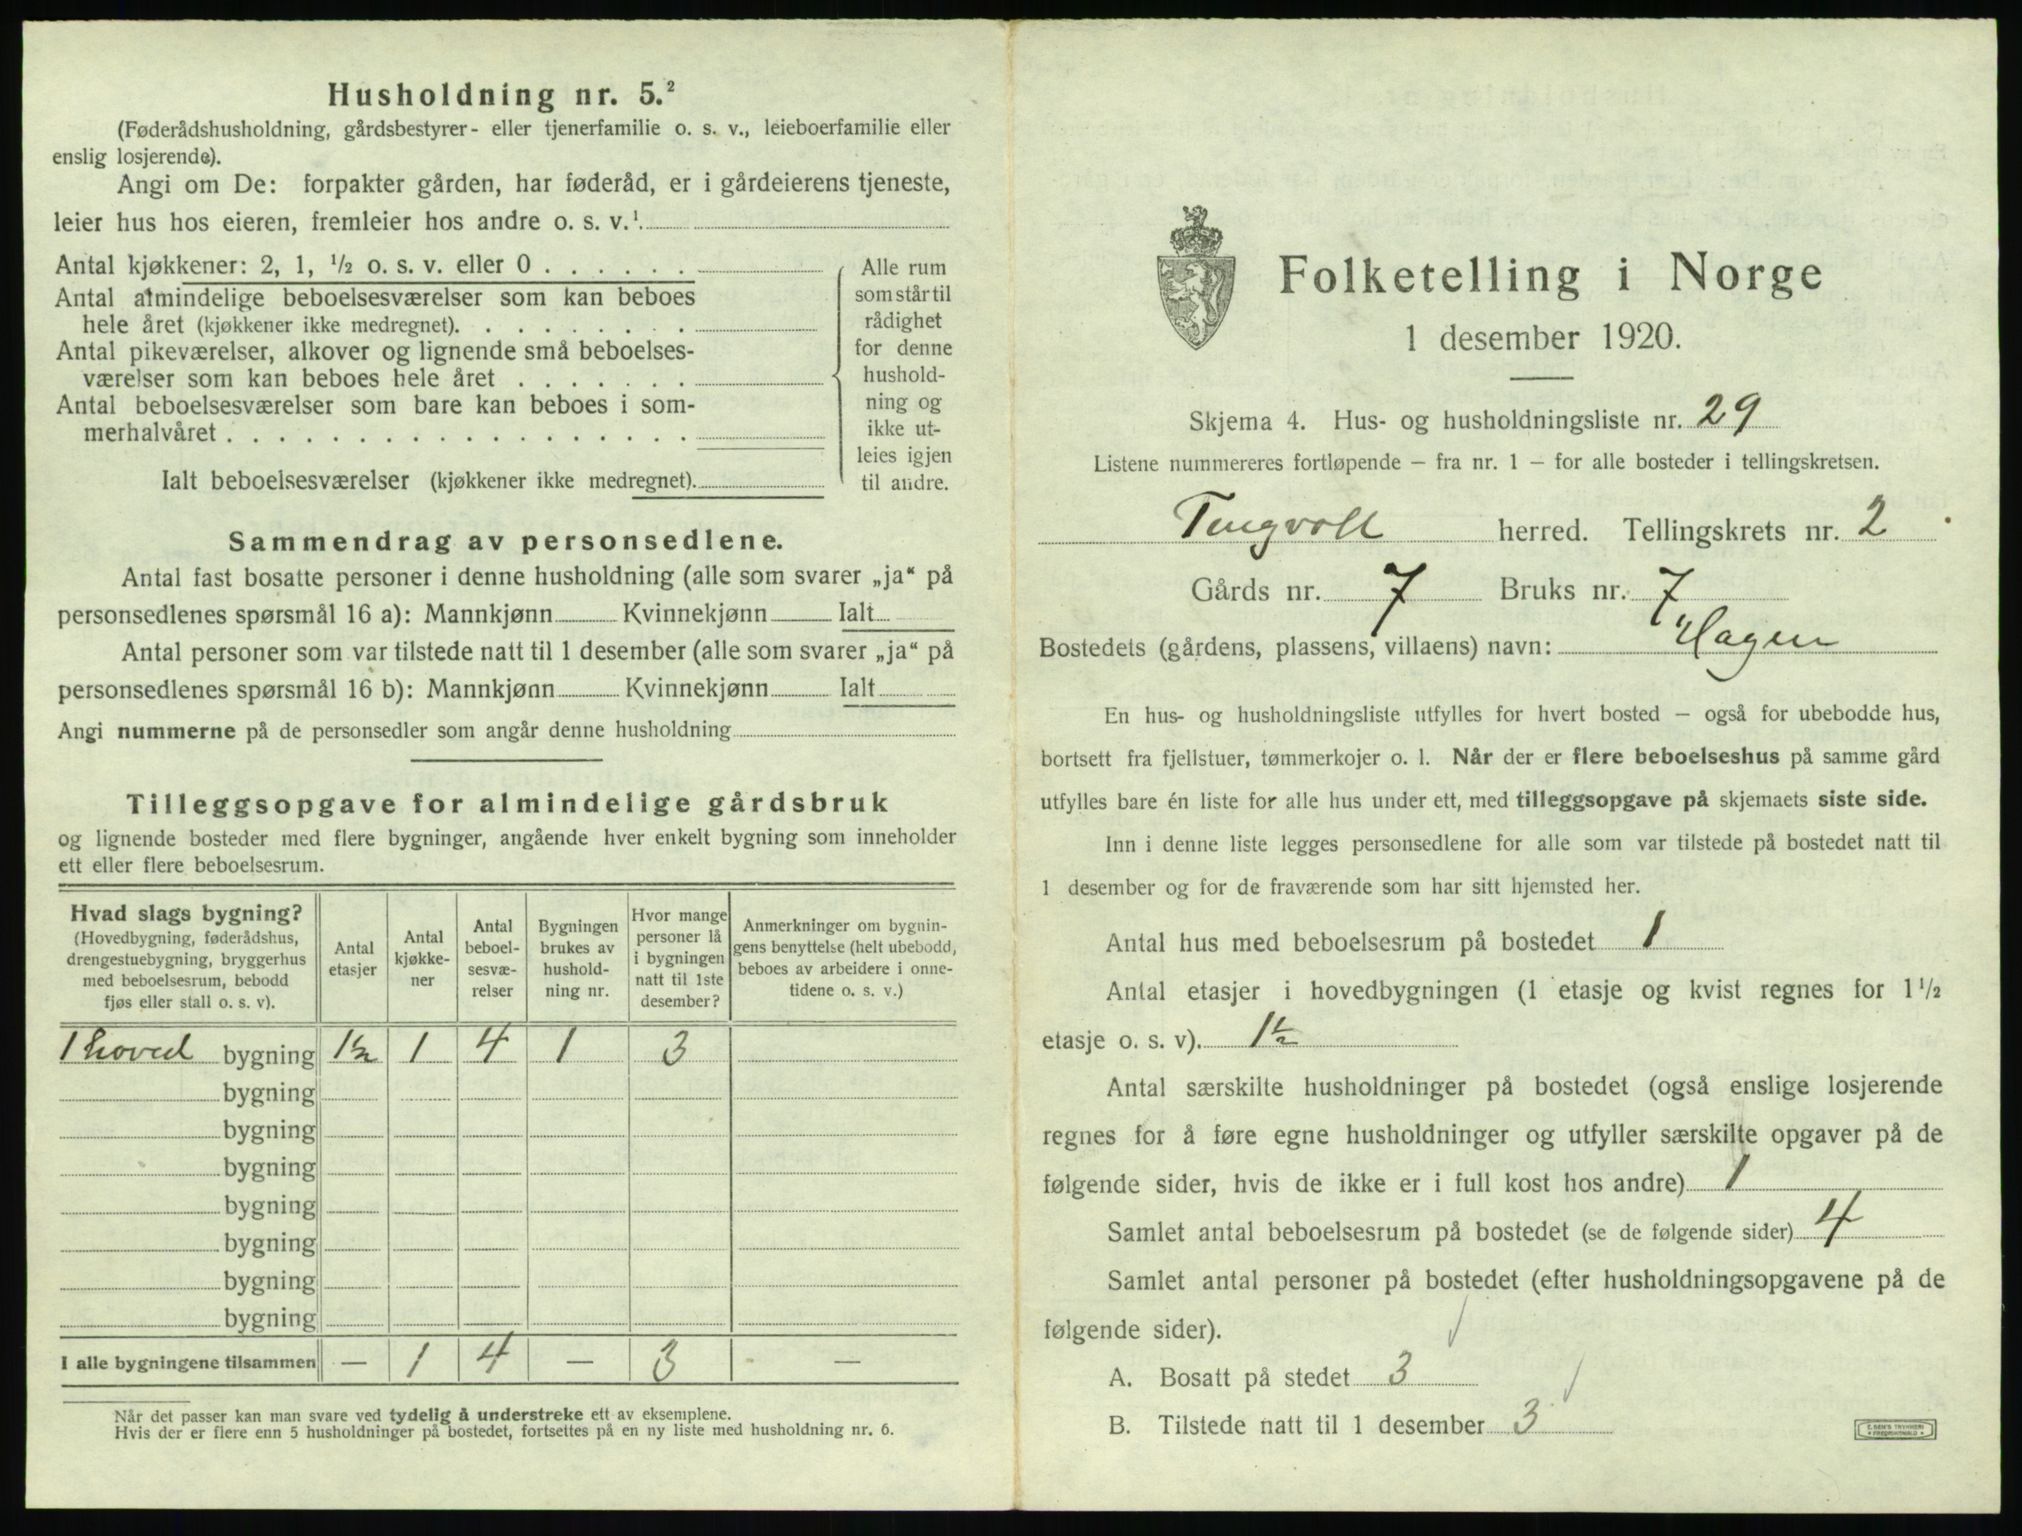 Husholdning nr. 5.²
(Føderådshusholdning, gårdsbestyrer- eller tjenerfamilie o. s. v., leieboerfamilie eller
enslig losjerende).
Angi om De: forpakter gården, har føderåd, er i gårdeierens tjeneste,
leier hus hos eieren, fremleier hos andre o. s. v.¹
Antal kjøkkener: 2, 1, ½ o. s. v. eller 0 . . . . . .
Antal almindelige beboelsesværelser som kan beboes
hele året (kjøkkener ikke medregnet). . . . . . . . .
Antal pikeværelser, alkover og lignende små beboelses-
værelser som kan beboes hele året . . . . . . .
Antal beboelsesværelser som bare kan beboes i som-
merhalvåret . . . . . . . . . . . . . . . . . .
Alle rum
som står til
rådighet
for denne
hushold-
ning og
ikke ut-
leies igjen
til andre.
Ialt beboelsesværelser (kjøkkener ikke medregnet).
Sammendrag av personsedlene.
Antal fast bosatte personer i denne husholdning (alle som svarer „ja“ på
personsedlenes spørsmål 16 a): Mannkjønn Kvinnekjønn Ialt
Antal personer som var tilstede natt til 1 desember (alle som svarer „ja“ på
personsedlenes spørsmål 16 b): Mannkjønn Kvinnekjønn Ialt
Angi nummerne på de personsedler som angår denne husholdning
Tilleggsopgave for almindelige gårdsbruk
og lignende bosteder med flere bygninger, angående hver enkelt bygning som inneholder
ett eller flere beboelsesrum.
Hvad slags bygning?
(Hovedbygning, føderådshus,
drengestuebygning, bryggerhus
med beboelsesrum, bebodd
fjøs eller stall o. s. v).
Antal
etasjer
Antal
kjøkke-
ner
Antal
beboel-
sesvæ-
relser
Bygningen
brukes av
hushold-
ning nr.
Hvor mange
personer lå
i bygningen
natt til 1ste
desember?
Anmerkninger om bygnin-
gens benyttelse (helt ubebodd,
beboes av arbeidere i onne-
tidene o. s. v.)
1 hoved bygning 1½ 1 4 1 3
bygning
bygning
bygning
bygning
bygning
bygning
bygning
I alle bygningene tilsammen — 1 4 — 3 —
Når det passer kan man svare ved tydelig å understreke ett av eksemplene.
Hvis der er flere enn 5 husholdninger på bostedet, fortsettes på en ny liste med husholdning nr. 6.
Folketelling i Norge
1 desember 1920.
Skjema 4. Hus- og husholdningsliste nr. 29
Listene nummereres fortløpende – fra nr. 1 – for alle bosteder i tellingskretsen.
Tingvoll herred. Tellingskrets nr. 2
Gårds nr. 7 Bruks nr. 7
Bostedets (gårdens, plassens, villaens) navn: Hagen
En hus- og husholdningsliste utfylles for hvert bosted – også for ubebodde hus,
bortsett fra fjellstuer, tømmerkojer o. l. Når der er flere beboelseshus på samme gård
utfylles bare én liste for alle hus under ett, med tilleggsopgave på skjemaets siste side.
Inn i denne liste legges personsedlene for alle som var tilstede på bostedet natt til
1 desember og for de fraværende som har sitt hjemsted her.
Antal hus med beboelsesrum på bostedet 1
Antal etasjer i hovedbygningen (1 etasje og kvist regnes for 1½
etasje o. s. v). 1½
Antal særskilte husholdninger på bostedet (også enslige losjerende
regnes for å føre egne husholdninger og utfyller særskilte opgaver på de
følgende sider, hvis de ikke er i full kost hos andre) 1
Samlet antal beboelsesrum på bostedet (se de følgende sider) 4
Samlet antal personer på bostedet (efter husholdningsopgavene på de
følgende sider).
A. Bosatt på stedet 3
B. Tilstede natt til 1 desember 3